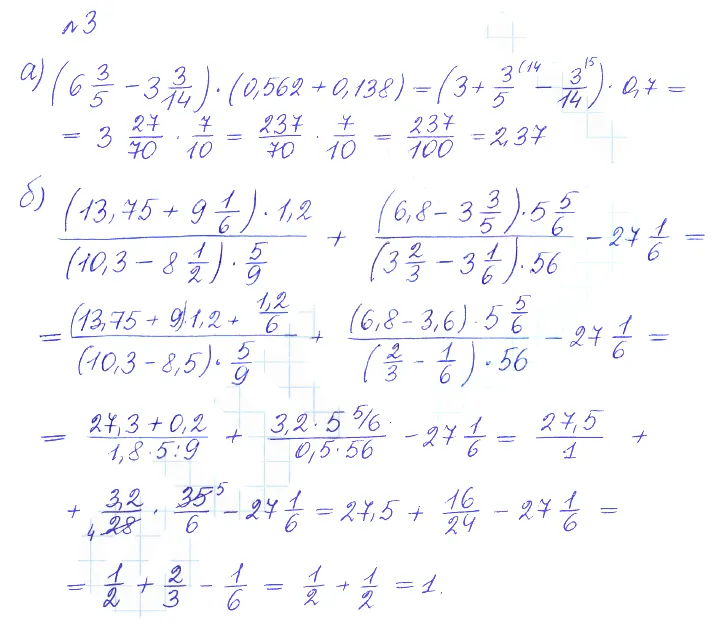 №3
а) (6 3/5 − 3 3/14) · (0,562 + 0,138) = (3 + 3/5 (14 − 3/14 (5) · 0,7 =
= 3 27/70 · 7/10 = 237/70 · 7/10 = 237/100 = 2,37
б) (13,75 + 9 1/6) · 1,2 / (10,3 − 8 1/2) · 5/9 + (6,8 − 3 3/5) · 5 5/6 / (3 2/3 − 3 1/6) · 56 − 27 1/6 =
= (13,75 + 9) · 1,2 + 1,2/6 / (10,3 − 8,5) · 5/9 + (6,8 − 3,6) · 5 5/6 / (2/3 − 1/6) · 56 − 27 1/6 =
= 27,3 + 0,2 / 1,8 · 5 : 9 + 3,2 · 5 5/6 / 0,5 · 56 − 27 1/6 = 27,5/1 +
+ 3,2 / 28 4 · 35 5 / 6 − 27 1/6 = 27,5 + 16/24 − 27 1/6 =
= 1/2 + 2/3 − 1/6 = 1/2 + 1/2 = 1.